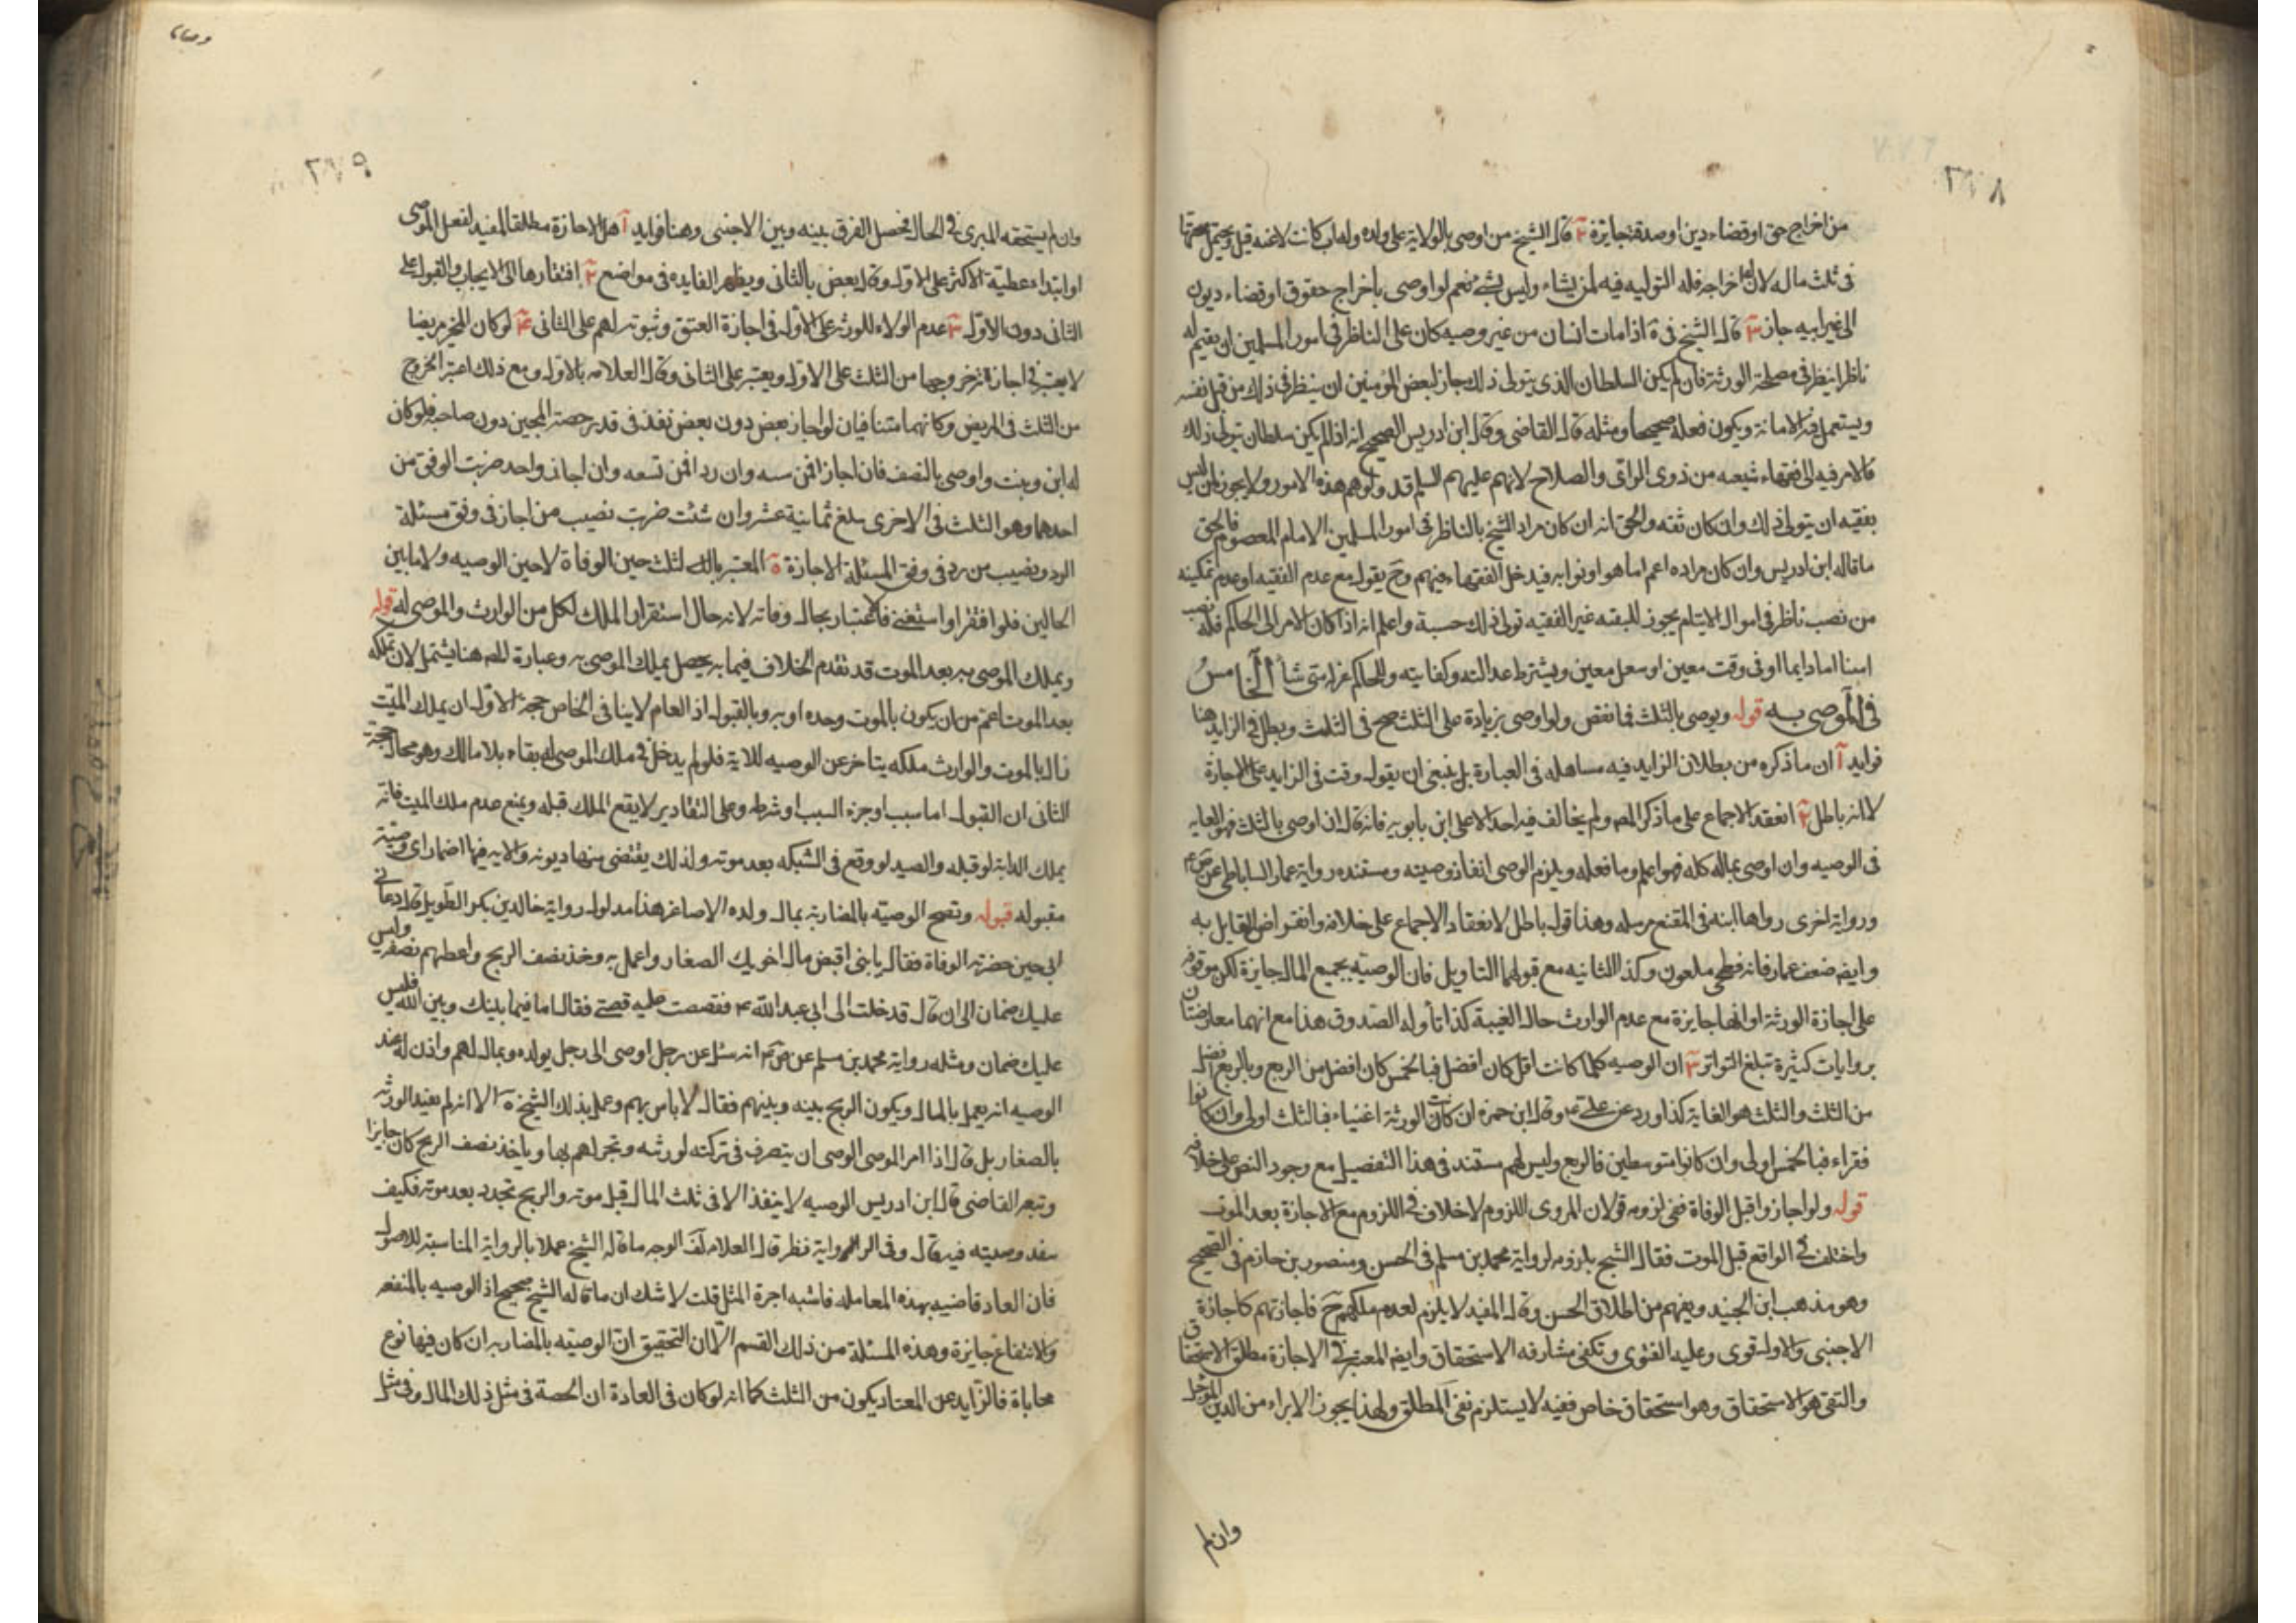 ٢٧٨
من اخراج حق او قضاء دين او صدقة جايزة ٢ قال الشيخ من اوصى بالولاية على ولده وله اب كانت لاغية قيل ويحتمل صحتها
فى ثلث ماله لان له اخراجه فله التوليه فيه لمن يشاء وليس بشئ نعم لو اوصى باخراج حقوق او قضاء ديون
الى غير ابيه جاز ٣ قال الشيخ فى ة اذا مات انسان من غير وصيه كان على الناظر فى امور المسلمين ان يقيم له
ناظرا ينظر فى مصلحة الورثة فان لم يكن السلطان الذى يتولى ذلك جاز لبعض المؤمنين ان ينظر فى ذلك من قبل نفسه
ويستعمل فيه الامانة ويكون فعله صحيحا ومثله قال القاضى وقال ابن ادريس الصحيح انه اذا لم يكن سلطان يتولى ذلك
فالامر فيه الى فقهاء شيعه من ذوى الراى والصلاح لانهم عليهم السلم قد ولوهم هذه الامور ولا يجوز لمن ليس
بفقيه ان يتولى ذلك وان كان ثقه والحق انه ان كان مراد الشيخ بالناظر فى امور المسلمين الامام المعصوم فالحق
ما قاله ابن ادريس وان كان مراده اعم اما هو او نوابه فيدخل الفقهاء فيهم وح يقول مع عدم الفقيه او عدم تمكينه
من نصب ناظر فى اموال الايتام يجوز للبقته غير الفقيه تولى ذلك حسبة واعلم انه اذا كان الامر الى الحاكم فله نصب
امينا اما دايما او فى وقت معين او بعمل معين ويشترط عدالته وكفايته وللحاكم عزله متى شاء الخامس
فى الموصى به قوله ويوصى بالثلث فما نقص ولو اوصى بزيادة على الثلث صح فى الثلث وبطل فى الزايد هنا
فوايد آ ان ما ذكره من بطلان الزايد فيه مساهله فى العبارة بل ينبغى ان يقول وقف فى الزايد على الاجازة
لا انه باطل ٢ انعقد الاجماع على ما ذكر المصـ ولم يخالف فيه احد الا على ابن بابويه فانه قال ان اوصى بالثلث فهو الغايه
فى الوصيه وان اوصى بماله كله فهو اعلم وما فعله ويلزم الوصى انفاذ وصيته ومستنده رواية عمار الساباطى عن ص ع
ورواية اخرى رواها ابنه فى المقنع مرسله وهذا قول باطل لانعقاد الاجماع على خلافه وانقراض القايل به
وايضـ ضعف عمار فانه فطحى ملعون وكذا الثانيه مع قبولهما التاويل فان الوصيه بجميع المال جايزة لكن موقوفه
على اجازة الورثة او انها جايزة مع عدم الوارث حال الغيبة كذا تأوله الصدوق هذا مع انهما معارضتان
بروايات كثيرة تبلغ التواتر ٣ ان الوصيه كلما كانت اقل كان افضل فبالخمس كان افضل من الربع وبالربع افضل
من الثلث والثلث هو الغاية كذا ورد عن على ع وقال ابن حمزه ان كانت الورثة اغنياء فبالثلث اولى وان كانوا
فقراء فبالخمس اولى وان كانوا متوسطين فالربع وليس لهم مستند فى هذا التفصيل مع وجود النص على خلافه
قوله ولو اجازوا قبل الوفاة ففى لزومه قولان المروى اللزوم لا خلاف فى اللزوم مع الاجازة بعد الموت
واختلف فى الواقع قبل الموت فقال الشيخ بلزومه لرواية محمد بن مسلم فى الحسن ومنصور بن حازم فى الصحيح
وهو مذهب ابن الجنيد ويفهم من اطلاق الحسن وقال المفيد لا يلزم لعدم ملكهم ح فاجازتهم كاجازة
الاجنبى والاول قوى وعليه الفتوى وتكفى مشارفه الاستحقاق وايضـ المعتبر فى الاجازة مطلق الاستحقاق
والنفى هو الاستحقاق وهو استحقاق خاص فنفيه لا يستلزم نفى المطلق ولهذا يجوز الابراء من الدين المؤجل
وان لم
وصايا
٢٧٩
وان لم يستحقه المبرى فى الحال فيحصل الفرق بينه وبين الاجنبى وهنا فوايد آ هل الاجازة مطلقا تنفيذ لفعل الموصى
او ابتداء عطية الاكثر على الاول وقال بعض بالثانى ويظهر الفايده فى مواضع ٢ افتقارها الى الايجاب والقبول على
الثانى دون الاول ٣ عدم الولاء للورثه على الاول فى اجازة العتق وثبوته لهم على الثانى ٤ لو كان المجيز مريضا
لا يعتبر فى اجازته خروجها من الثلث على الاول ويعتبر على الثانى وقال العلامه بالاول ومع ذلك اعتبر الخروج
من الثلث فى المريض وكانهما متنافيان لو اجاز بعض دون بعض نفذ فى قدر حصة المجيز دون صاحبه فلو كان
له ابن وبنت واوصى بالنصف فان اجازا فمن سته وان ردا فمن تسعه وان اجاز واحد ضربت الوفق من
احدهما وهو الثلث فى الاخرى يبلغ ثمانية عشر وان شئت ضربت نصيب من اجاز فى وفق مسئلة
الرد ونصيب من رد فى وفق المسئلة الاجازة ة المعتبر بالثلث حين الوفاة لا حين الوصيه ولا ما بين
الحالين فلو افتقر او استغنى فالاعتبار بحال وفاته لانه حال استقرار الملك لكل من الوارث والموصى له قوله
ويملك الموصى به بعد الموت قد تقدم الخلاف فيما به يحصل يملك الموصى به وعبارة المصـ هنا يشتمل لان تملكه
بعد الموت اعم من ان يكون بالموت وحده او به وبالقبول اذ العام لا ينافى الخاص حجة الاول ان يملك الميت
زال بالموت والوارث ملكه يتاخر عن الوصيه للاية فلو لم يدخل فى ملك الموصى له بقاء بلا مالك وهو محال حجة
الثانى ان القبول اما سبب او جزء السبب او شرط وعلى التقادير لا يقع الملك قبله ويمنع عدم ملك الميت فانه
يملك الدية لو قبله والصيد لو وقع فى الشبكه بعد موته ولذلك يقتضى منها ديونه والايه فيها اضمار اى وصيته
مقبوله قوله وتصح الوصيته بالمضاربة بمال ولده الاصاغر هذا مدلول رواية خالد بن بكر الطويل قال دعانى
ابى حين حضرته الوفاة فقال يا بنى اقبض مال اخويك الصغار واعمل به وخذ نصف الربح واعطهم نصفه وليس
عليك ضمان الى ان قال قد دخلت الى ابى عبد الله ع فقصصت عليه قصتى فقال اما فيما بينك وبين الله فليس
عليك ضمان ومثله رواية محمد بن مسلم عن ص ع انه سئل عن رجل اوصى الى رجل بولده وبمال لهم واذن له عند
الوصيه انه يعمل بالمال ويكون الربح بينه وبينهم فقال لا باس بهم وعمل بذلك الشيخ ة الا انه لم يقيد الورثه
بالصغار بل قال اذا امر الموصى الوصى ان يتصرف فى تركته لورثه ويتجر لهم بها وياخذ نصف الربح كان جايزا
وتبعه القاضى قال ابن ادريس الوصيه لا ينفذ الا فى ثلث المال قبل موته والربح تجدد بعد موته فكيف
ينفذ وصيته فيه قال وفى الرواية نظر قال العلامه لف الوجه ما قاله الشيخ عملا بالرواية المناسبة للاصول
فان العادة قاضيه بهذه المعامله فاشبه اجرة المثل قلت لا شك ان ما قاله الشيخ صحيح اذ الوصيه بالمنفعه
والانتفاع جايزة وهذه المسئلة من ذلك القسم الا ان التحقيق ان الوصيته بالمضاربه ان كان فيها نوع
محاباة فالزايد عن المعتاد يكون من الثلث كما انه لو كان فى العادة ان الحصة فى مثل ذلك المال وفى مثل